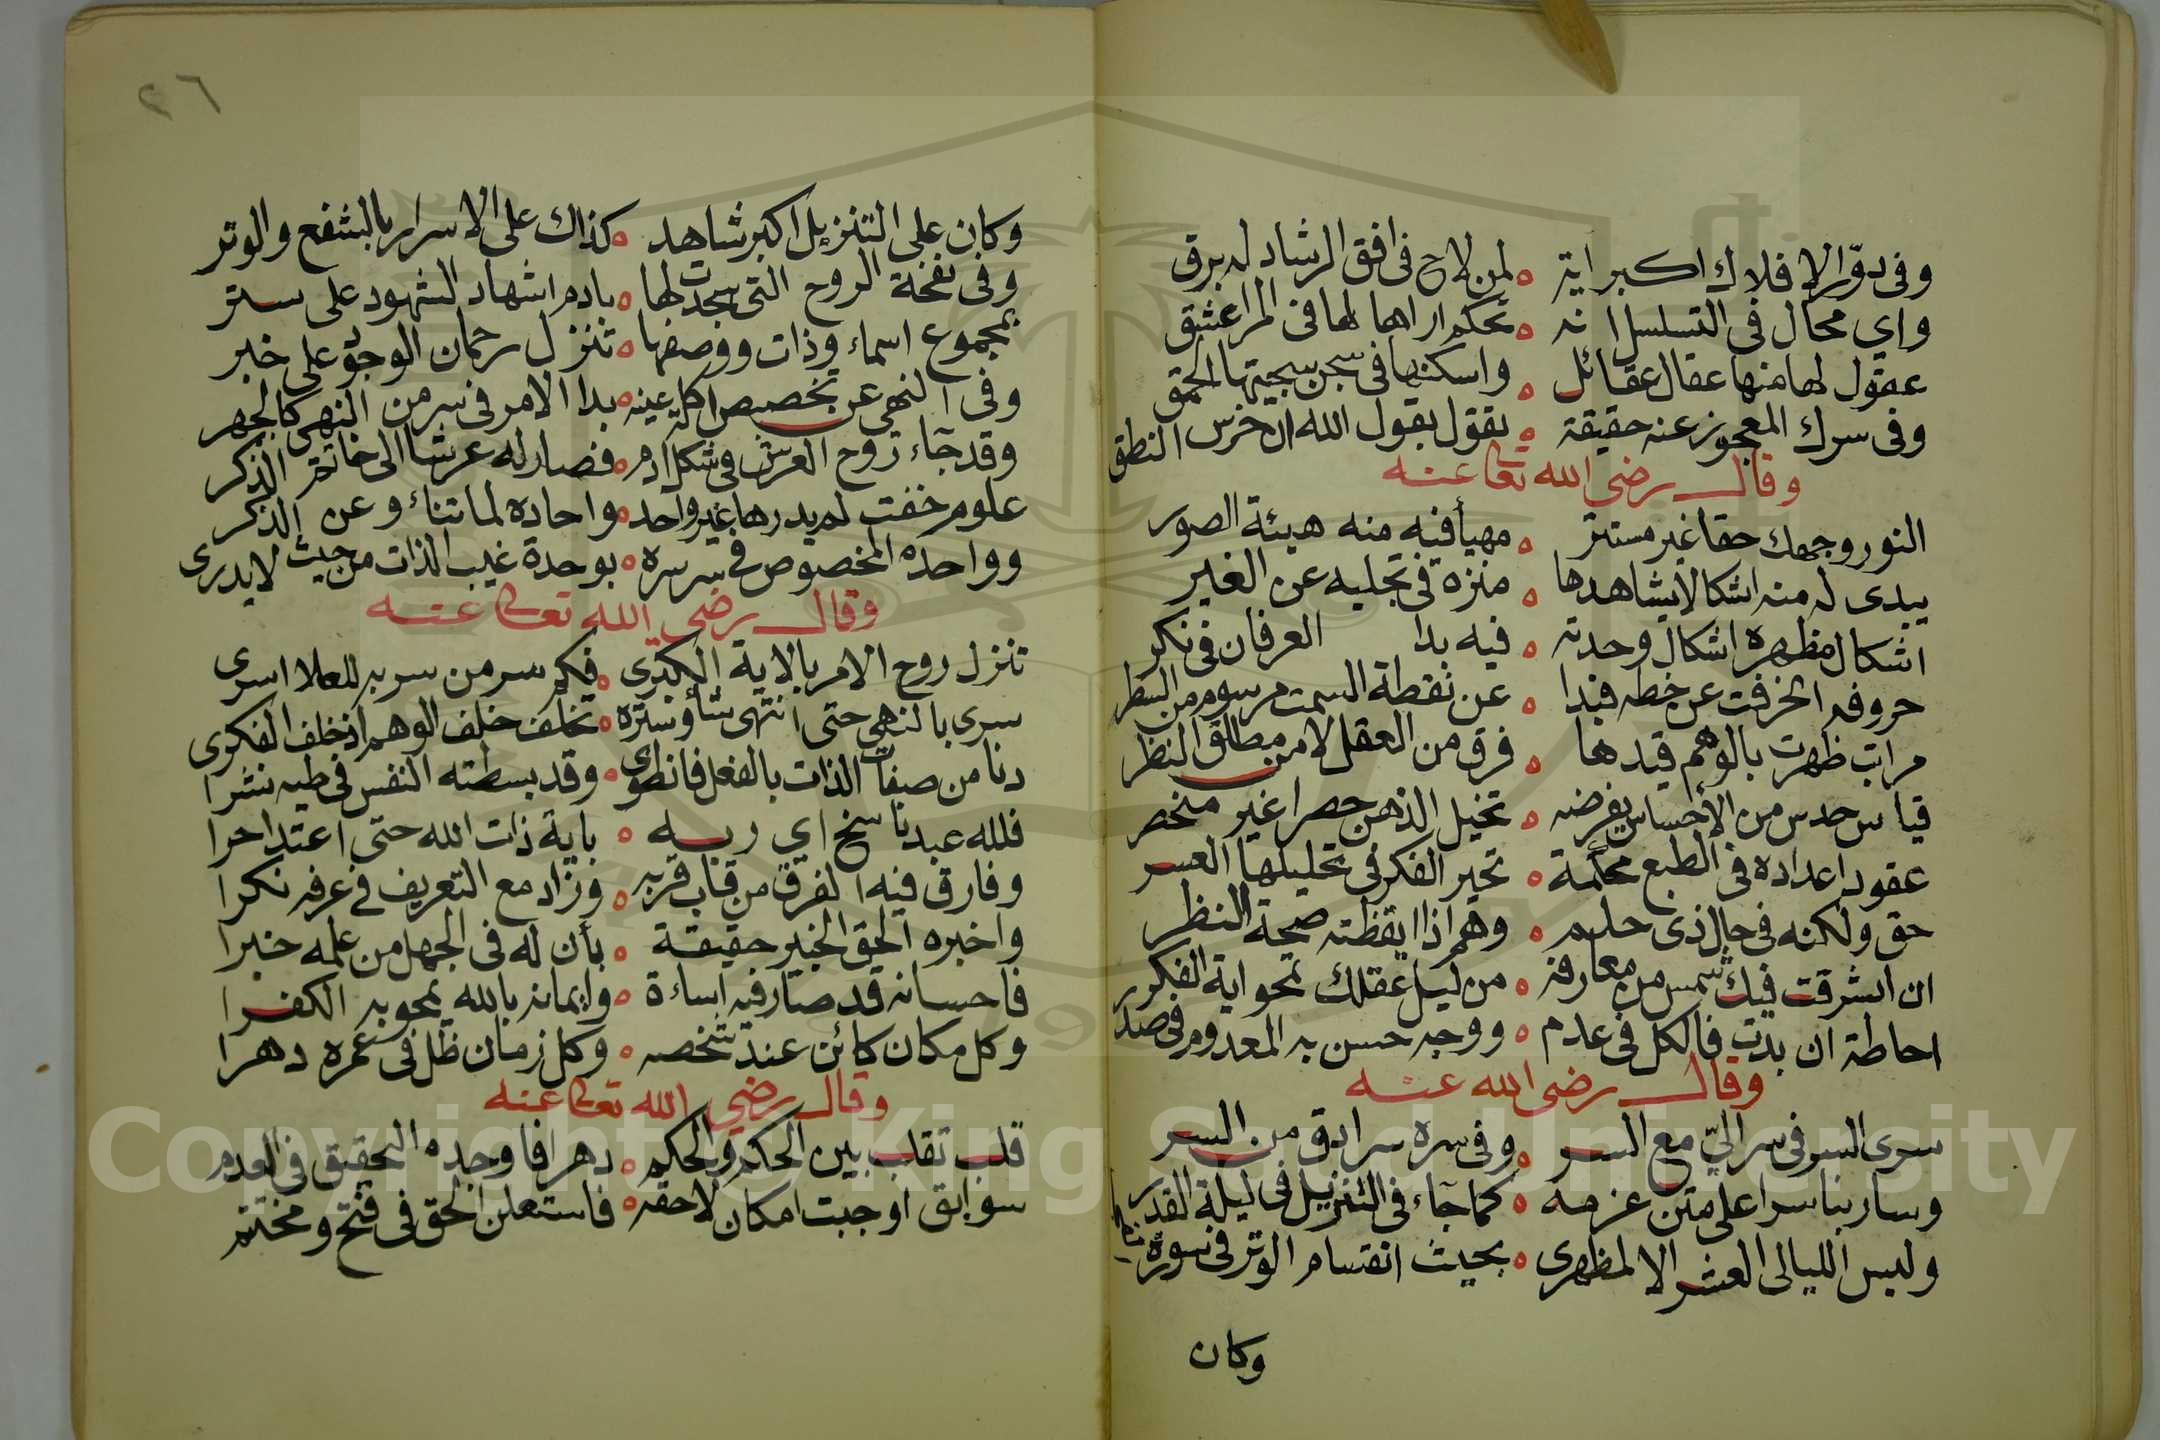 وفى دوّار الافلاك اكبر اية ه لمن لاح فى افق الرشاد له برق
واى محال فى التسلسل انه ه تحكم اراها لها فى المرا عشق
عقول لها منها عقال عقائل ه واسكنها فى سجن سجيتها الحمق
وفى سرك المعجوز عنه حقيقة ه يقول بقول الله ان خرس النطق
وقال رضى الله تعا عنه
النور وجهك حقا غير مستتر ه مهيأ فيه منه هيئة الصور
يبدى له منه اشكالا يشاهدها ه منزه فى تجليه عن الغير
اشكال مظهره اشكال وحدته ه فيه بدا العرفان فى نكر
حروفه انحرفت عن خطه فبدا ه عن نقطة السمت مرسوم من السطر
مراتب ظهرت بالوهم قيدها ه فرق من العقل لا من مطلق النظر
قياس حدس من الاحساس يفرضه ه تخيل الذهن حصرا غير منحصر
عقود اعداده فى الطبع محكمة ه تحير الفكر فى تحليلها العسر
حق ولكنه فى حال ذى حلم ه وهم اذا ايقظته صحة النظر
ان اشرقت فيك شمس من معارفه ه من ليل عقلك تمحو اية الفكر
احاطة ان بدت فالكل فى عدم ه ووجه حسن به المعدوم فى صدر
وقال رضى الله عنه
سرى السر فى سر الىّ مع السر ه وفى سره سرادق من السر
وسار بنا سرا على متن عزمه ه كما جآء فى التنزيل فى ليلة القدر
وليس الليالى العشر الا لمظهرى ه بحيث انقسام الوتر فى سورة
وكان
٢٦
وكان على التنزيل اكبر شاهد ه كذاك على الاسرار بالشفع والوتر
وفى نفخة الروح التى سجدت لها ه بادم اشهاد الشهود على ستر
بمجموع اسماء وذات ووصفها ه تنزل رحمان الوجود على خبر
وفى النهى عن تخصيص اكلة عينه ه بدا الامر فى سر من النهى كالجهر
وقد جآء روح العرش فى شكل ادم ه فصار له عرشا الى خاتم الذكر
علوم خفت لم يدرها غير واحد ه واحاده لما تناء وعن الذكر
وواحده المخصوص فى سر سره ه بوحدة غيب الذات من حيث لا يدرى
وقال رضى الله تعا عنه
تنزل روح الامر بالاية الكبرى ه فكم سر من سر به للعلا اسرى
سرى بالنهى حتى انتهى شأو ستره ه تخلف خلف الوهم اذ خلف الفكرى
دنا من صفات الذات بالفعل فانطوى ه وقد بسطته النفس فى طيه نشرا
فلله عبد ناسخ اى ربه ه باية ذات الله حتى اعتدا حرا
وفارق فيه الفرق من قاب قربه ه وزاد مع التعريف فى عرفه نكرا
واخبره الحق الخبير حقيقة ه بأن له فى الجهل من علمه خبرا
فاحسانه قد صار فيه اساءة ه وايمانه بالله يمحو به الكفرا
وكل مكان كائن عند شخصه ه وكل زمان ظل فى عمره دهرا
وقال رضى الله تعا عنه
قلب تقلب بين الحكم والحكم ه دهرا فاوجده التحقيق فى العدم
سوابق اوجبت امكان لاحقه ه فاستعلن الحق فى فتح ومختتم
Copyright © King Saud University